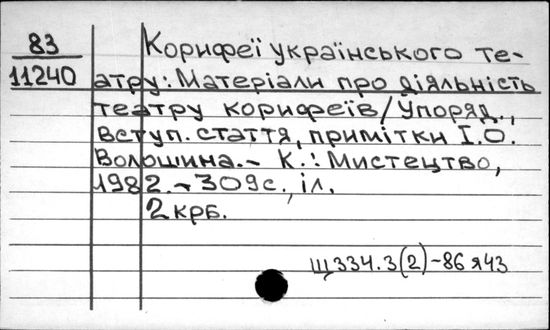 83
11240
Корифеї українського те-
атру: Матеріали про діяльність
театру корифеїв/Упоряд.,
вступ. стаття, примітки І.О.
Волошина.- К.: Мистецтво,
1982.-309с., іл.
2 крб.
Щ334.3(2)-86я43